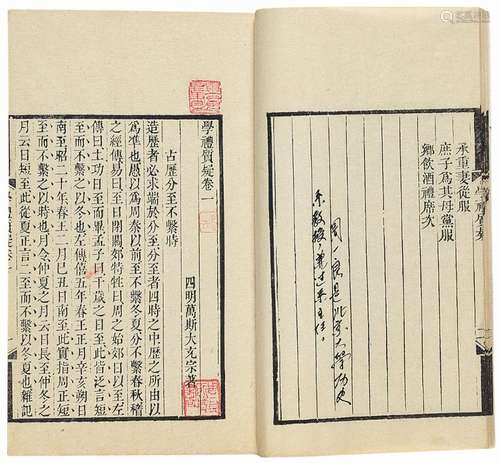 承重妻從服
庶子爲其母黨服
鄉飲酒禮席次
是北京大學历史
系教授，
系主任。
學禮質疑卷一
四明萬斯大充宗著
古歷分至不繫時
造歷者必求端於分至分至者四時之中歷之所由以
爲準也以爲周秦以前至不繫冬夏分不繫春秋稽
之經傳易曰至日閉關郊特牲曰周之始郊日以至左
傳曰土功日至而畢孟子曰千歲之日至此皆泛言短
至而不繫以冬也左傳僖五年春王正月辛亥朔日
南至昭二十年春王二月己丑日南至此實指周正短
至而不繫以時也月令仲夏之月云日長至仲冬之
月云日短至此從夏正言二至而不繫以冬夏也雜記